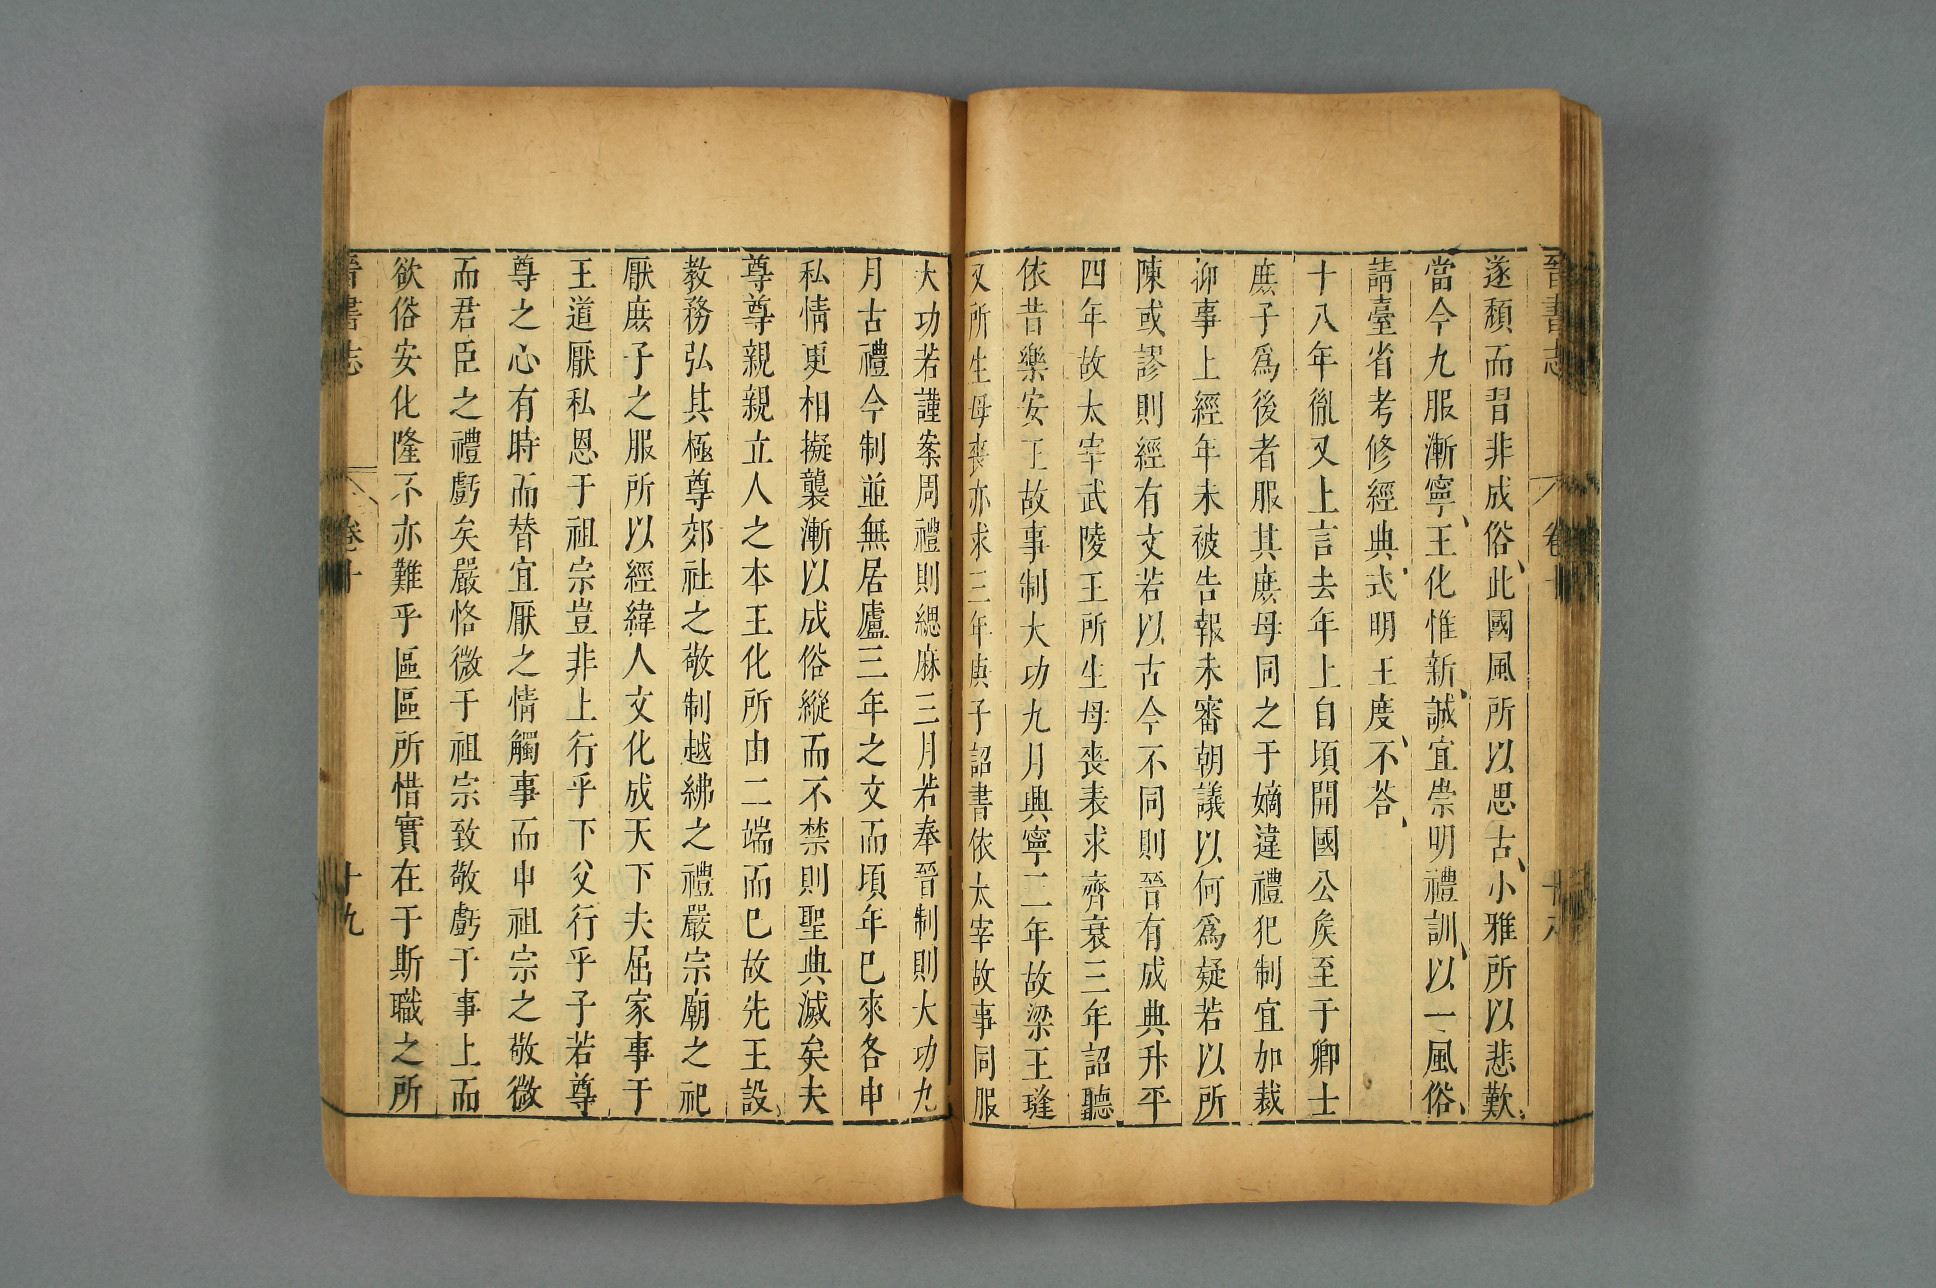 晉書志 卷十 十八
遂頹而習非成俗、此國風所以思古、小雅所以悲歎、
當今九服漸寧、王化惟新、誠宜崇明禮訓、以一風俗、
請臺省考修經典、式明王度、不答、
十八年胤又上言去年上自頃開國公矦至于卿士
庶子爲後者服其庶母同之于嫡違禮犯制宜加裁
抑事上經年未被告報未審朝議以何爲疑若以所
陳或謬則經有文若以古今不同則晉有成典升平
四年故太宰武陵王所生母喪表求齊衰三年詔聽
依昔樂安王故事制大功九月興寧二年故梁王𨔵
又所生母喪亦求三年庚子詔書依太宰故事同服
大功若謹案周禮則緦麻三月若奉晉制則大功九
月古禮今制並無居廬三年之文而頃年已來各申
私情更相擬襲漸以成俗縱而不禁則聖典滅矣夫
尊尊親親立人之本王化所由二端而已故先王設
教務弘其極尊郊社之敬制越紼之禮嚴宗廟之祀
厭庶子之服所以經緯人文化成天下夫屈家事于
王道厭私恩于祖宗豈非上行乎下父行乎子若尊
尊之心有時而替宜厭之情觸事而申祖宗之敬微
而君臣之禮虧矣嚴恪微于祖宗致敬虧于事上而
欲俗安化隆不亦難乎區區所惜實在于斯職之所
晉書志 卷十 十九